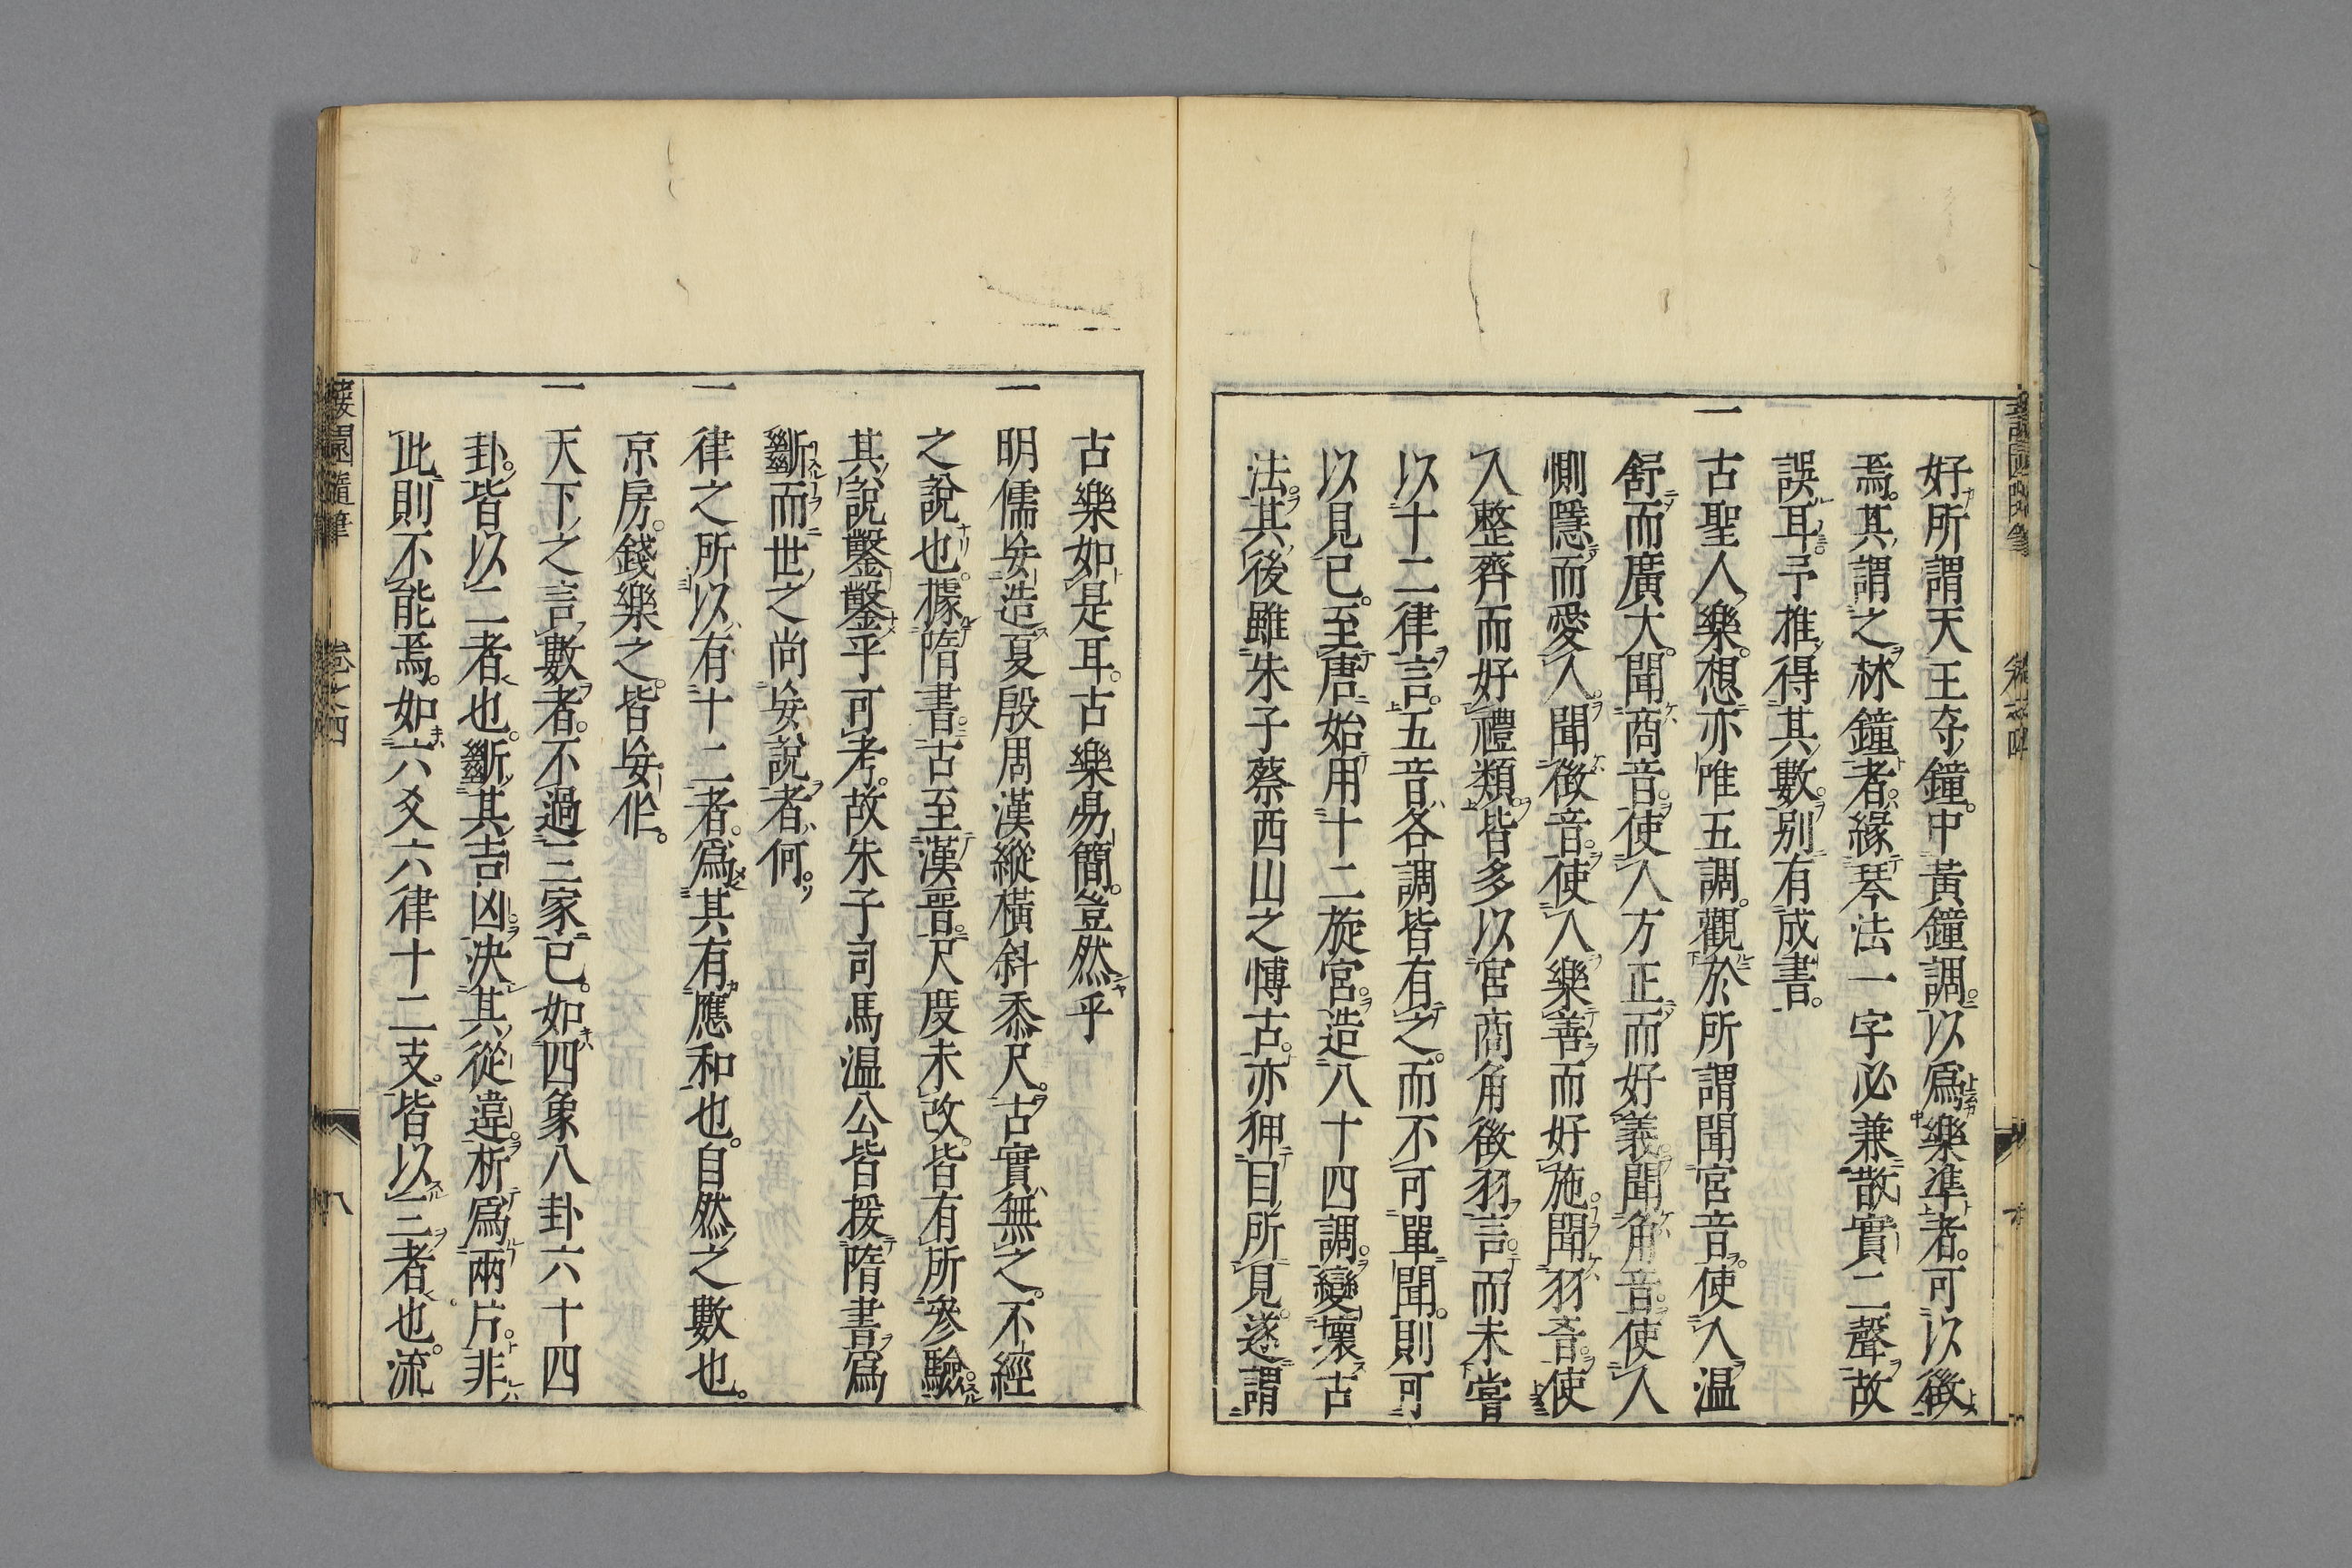 好所謂天王寺鐘。中黃鐘調。以爲樂準者。可以徵
焉。其謂之林鐘者。緣琴法一字必兼散實二聲故
誤耳。予推得其數。別有成書。
一古聖人樂。想亦唯五調。觀於所謂聞宮音。使人溫
舒而廣大。聞商音。使人方正而好義。聞角音。使人
惻隱而愛人。聞徵音。使人樂善而好施。聞羽音。使
人整齊而好禮類。皆多以宮商角徵羽言。而未嘗
以十二律言。五音各調皆有之。而不可單聞。則可
以見已。至唐始用十二旋宮。造八十四調。變壞古
法。其後雖朱子蔡西山之愽古。亦狎目所見。遂謂
古樂如是耳。古樂易簡。豈然乎
一明儒妄造夏殷周漢縱橫斜黍尺。古實無之。不經
之說也。據隋書。古至漢晉。尺度未改。皆有所參驗。
其說鑿鑿乎可考。故朱子司馬溫公皆援隋書爲
斷。而世之尚妄說者何。
一律之所以有十二者。爲其有應和也。自然之數也。
京房。錢樂之。皆妄作。
一天下之言數者。不過三家已。如四象八卦六十四
卦。皆以二者也。斷其吉凶。決其從違。析爲兩片。非
此則不能焉。如六爻六律十二支。皆以三者也。流
蘐園隨筆 卷之四 八